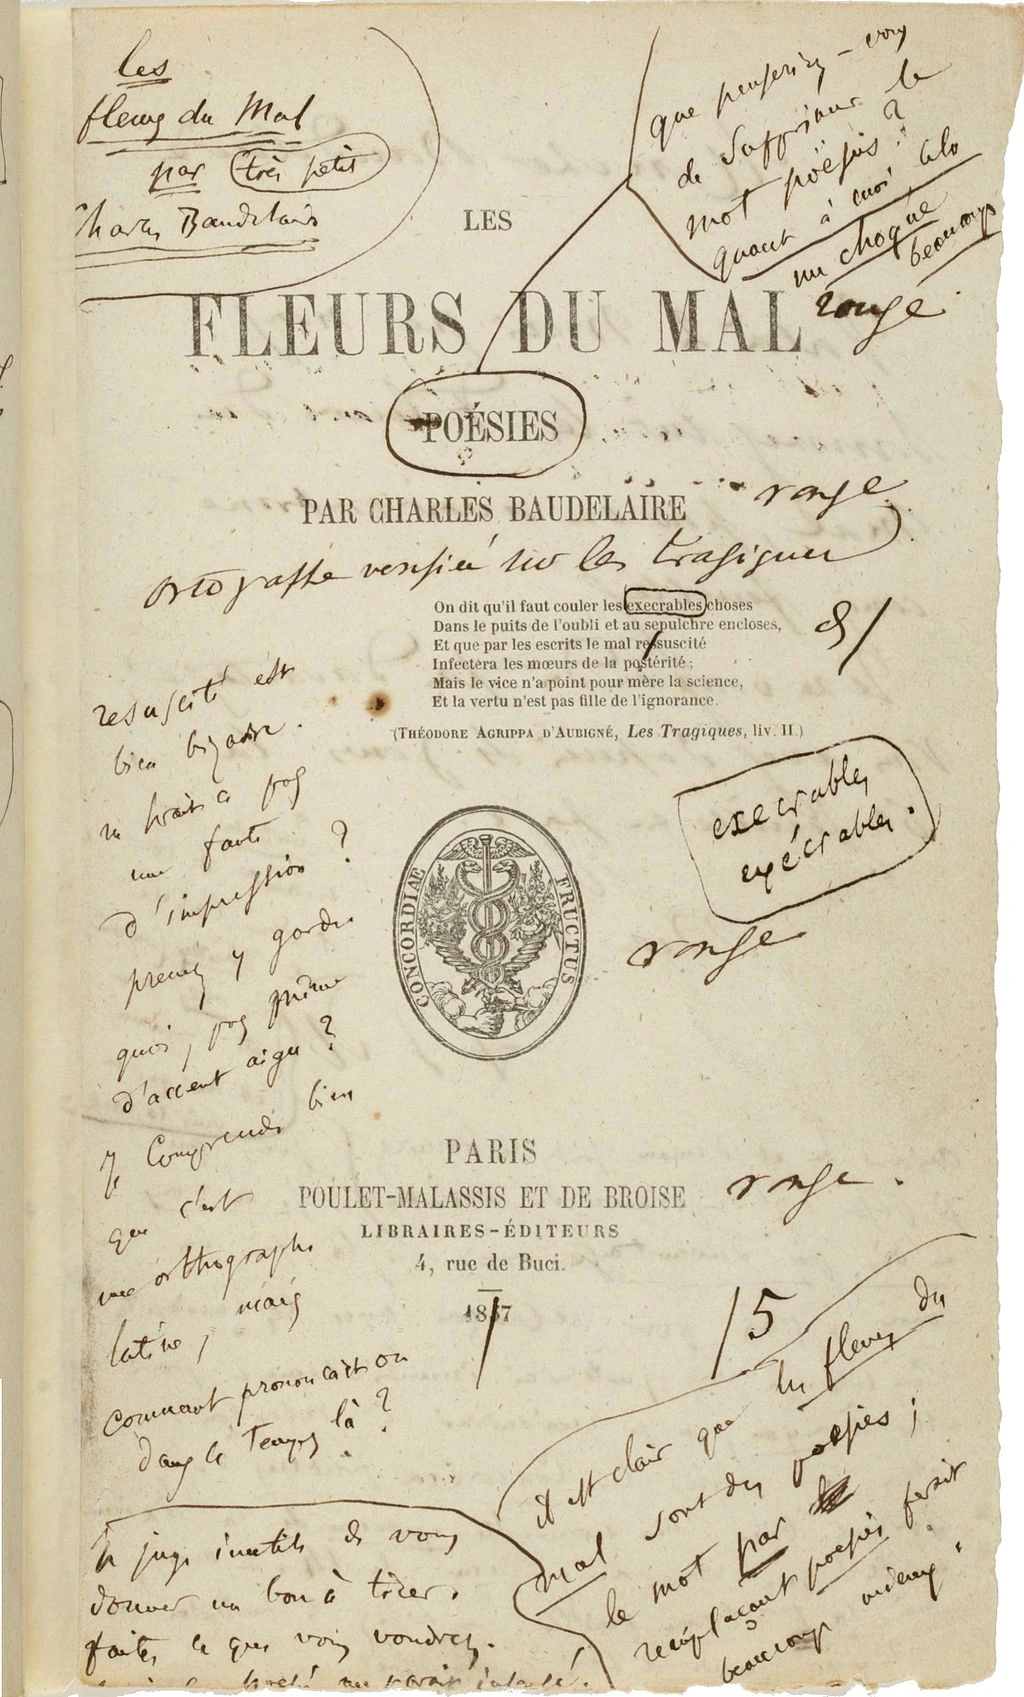 les
fleurs du Mal
par très petit
Charles Baudelaire
que penseriez-vous
de supprimer le
mot poësies ?
quant à moi cela
me choque
beaucoup
LES
FLEURS DU MAL
rouge.
POÉSIES
PAR CHARLES BAUDELAIRE
rouge
ortografhe vérifiée sur les tragiques
On dit qu'il faut couler les execrables choses
Dans le puits de l'oubli et au sepulchre encloses,
Et que par les escrits le mal ressuscité
Infectera les mœurs de la postérité ;
Mais le vice n'a point pour mère la science,
Et la vertu n'est pas fille de l'ignorance.
(THÉODORE AGRIPPA D'AUBIGNÉ, Les Tragiques, liv. II.)
resuscité est
bien bizarre.
ne serait ce pas
une faute
d'impression ?
prenez y garde
quoi, pas même
d'accent aigu ?
Je comprends bien
que c'est
une orthographe
latine, mais
comment prononçait on
dans ce temps là ?
execrables
exécrables.
rouge
CONCORDIÆ FRUCTUS
PARIS
POULET-MALASSIS ET DE BROISE
rouge.
LIBRAIRES-ÉDITEURS
4, rue de Buci.
1857
/5
il est clair que les fleurs du
mal sont des poësies ;
le mot par
remplaçant poësies serait
beaucoup mieux.
Je juge inutile de vous
donner un bon à tirer.
faites ce que vous voudrez.